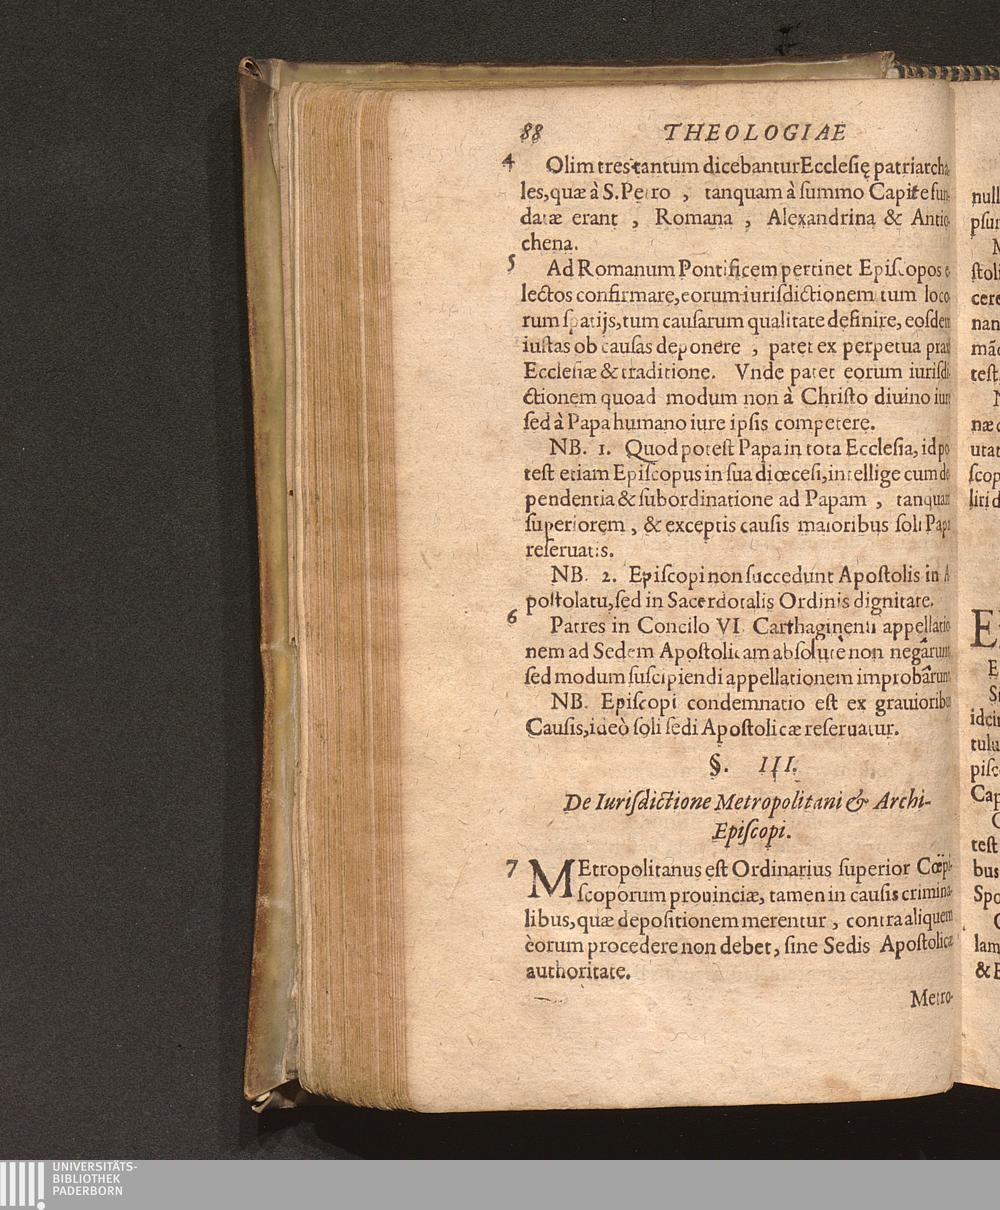 88 THEOLOGIAE
4 Olim tres tantum dicebantur Ecclesię patriarcha-
les, quæ à S. Petro, tanquam à summo Capite fun-
datæ erant, Romana, Alexandrina & Antio-
chena.
5 Ad Romanum Pontificem pertinet Episcopos e-
lectos confirmare, eorum iurisdictionem tum loco
rum spatijs, tum causarum qualitate definire, eosdem
iustas ob causas deponere, patet ex perpetua praxi
Ecclesiæ & traditione. Vnde patet eorum iurisdi-
ctionem quoad modum non à Christo diuino iure
sed à Papa humano iure ipsis competere.
NB. 1. Quod potest Papa in tota Ecclesia, id po
test etiam Episcopus in sua diœcesi, intellige cum de
pendentia & subordinatione ad Papam, tanquam
superiorem, & exceptis causis maioribus soli Papæ
reseruatis.
NB. 2. Episcopi non succedunt Apostolis in A
postolatu, sed in Sacerdotalis Ordinis dignitate.
6 Patres in Concilo VI. Carthaginensi appellatio
nem ad Sedem Apostolicam absolutè non negârunt
sed modum suscipiendi appellationem improbârunt
NB. Episcopi condemnatio est ex grauioribus
Causis, ideò soli sedi Apostolicæ reseruatur.
§. III.
De Iurisdictione Metropolitani & Archi-
Episcopi.
7 MEtropolitanus est Ordinarius superior Cœpi-
scoporum prouinciæ, tamen in causis crimina-
libus, quæ depositionem merentur, contra aliquem
èorum procedere non debet, sine Sedis Apostolicæ
authoritate.
Metro-
null
stoli
cere
nan
mãd
test.
utat
scop
E
idcir
tulu
pisc
Cap
test
bus
Spo
lam
UNIVERSITÄTS-
BIBLIOTHEK
PADERBORN